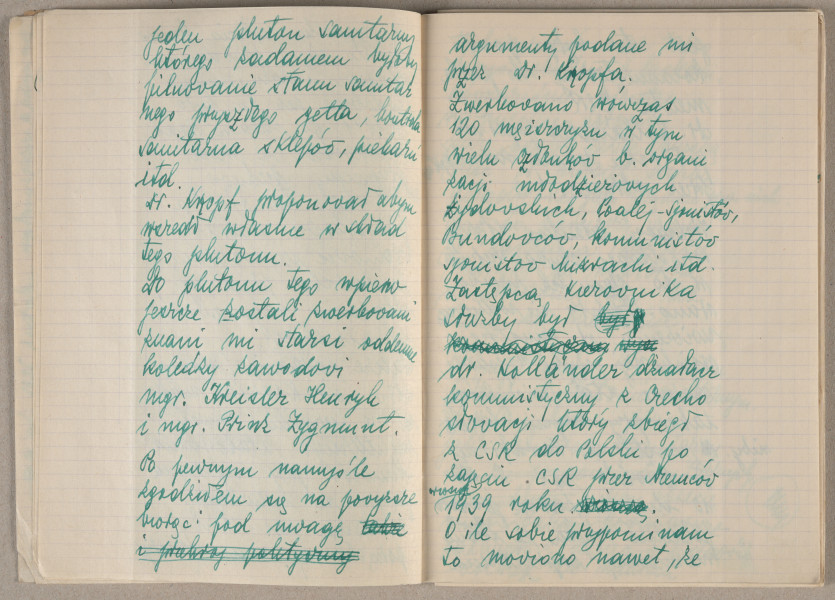 jeden pluton sanitarny
którego zadaniem byłoby
pilnowanie stanu sanitar
nego przyszłego getta, kontrola
sanitarna sklepów, piekarń
itd.
Dr. Kropf proponował abym
wszedł właśnie w skład
tego plutonu.
Do plutonu tego wpierw
jeszcze zostali zwerbowani
znani mi starsi oddemnie
koledzy zawodowi
mgr. Kreisler Henryk
i mgr. Prinz Zygmunt.
Po pewnym namyśle
zgodziłem się na powyższe
biorąc pod uwagę także
i przekrój polityczny
argumenty podane mi
przez Dr. Kropfa.
Zwerbowano wówczas
120 mężczyzn w tym
wielu członków b. organi
zacji młodzieżowych
żydowskich, Poalej-Sjonistów,
Bundowców, komunistów
sjonistów Mizrachi itd.
Zastępcą kierownika
służby był
dr. Holländer działacz
komunistyczny z Czecho
słowacji który zbiegł
z CSR do Polski po
zajęciu CSR przez Niemców
wiosną
1939 roku wiosną.
O ile sobie przypominam
to mówiono nawet, że